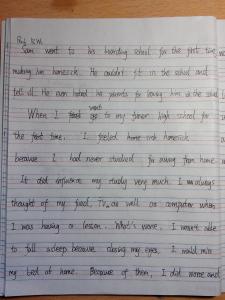 Sam went to his boarding school for the first time
making him homesick. He couldn't fit in the school and
fell ill. He even hated his parents for leaving him in the school
When I first went to my junior high school for
the first time, I feeled home sick homesick
because I had never studied far away from home
It did influence my study very much. I was always
thought of my food, TV as well as computer when
I was having a lesson. What's worse, I wasn't able
to fall asleep because closing my eyes, I would miss
my bed at home. Because of them, I did worse and